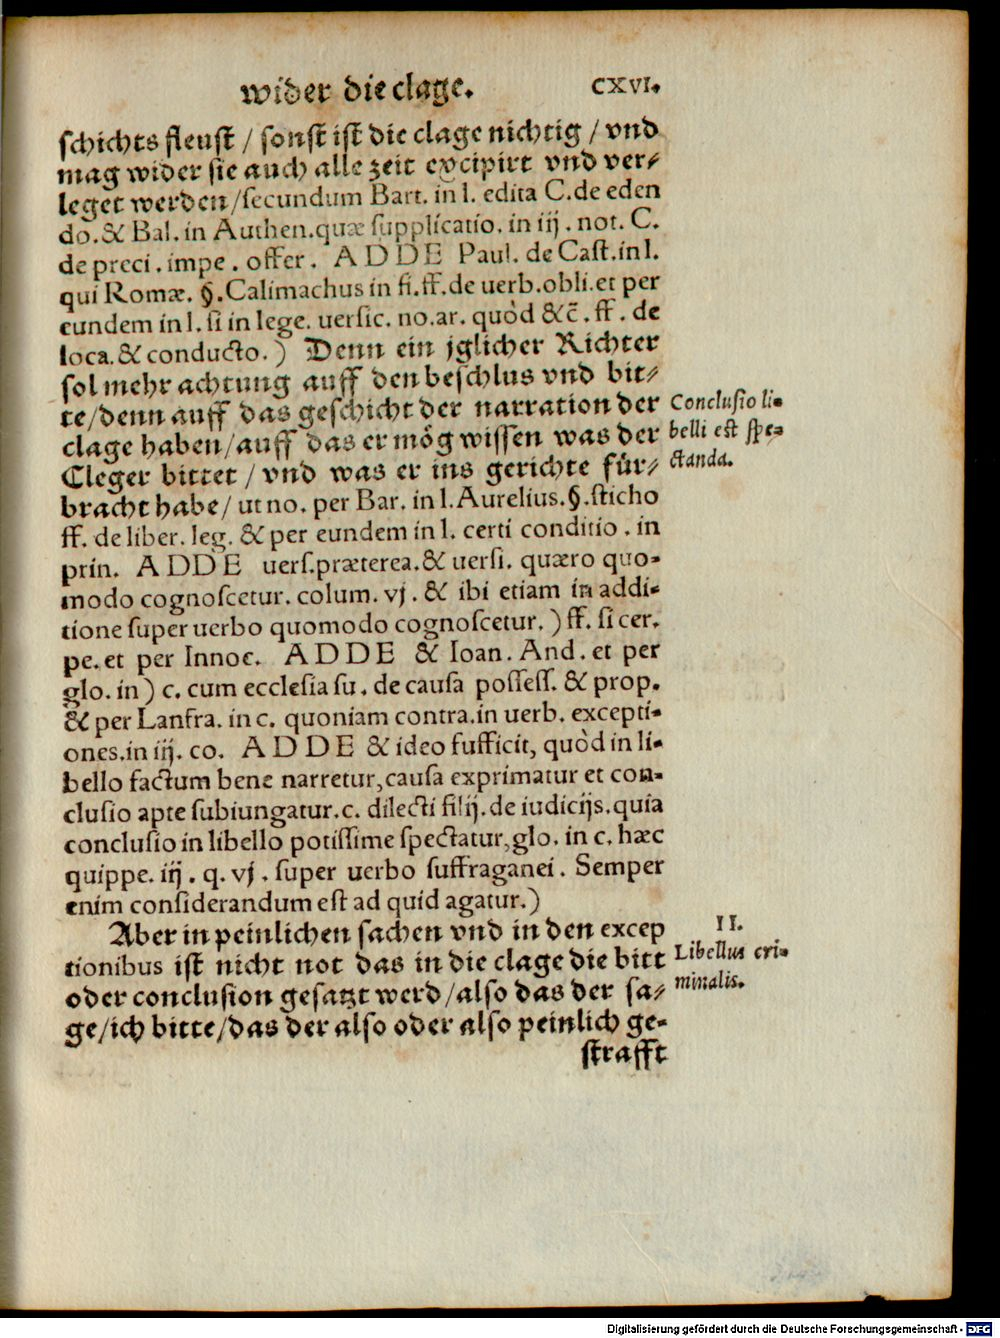 wider die clage. CXVI.
schichts fleust / sonst ist die clage nichtig / vnd
mag wider sie auch alle zeit excipirt vnd ver⸗
leget werden/secundum Bart. in l. edita C. de eden
do. & Bal. in Authen. quæ supplicatio. in iij. not. C.
de preci. impe. offer. ADDE Paul. de Cast. in l.
qui Romæ. §. Calimachus in fi. ff. de uerb. obli. et per
eundem in l. si in lege. uersic. no. ar. quòd &c̄. ff. de
loca. & conducto.) Denn ein jglicher Richter
sol mehr achtung auff den beschlus vnd bit⸗
te/denn auff das geschicht der narration der
Conclusio li-
clage haben/auff das er mög wissen was der
belli est spe-
Cleger bittet / vnd was er ins gerichte für⸗
ctanda.
bracht habe/ ut no. per Bar. in l. Aurelius. §. sticho
ff. de liber. leg. & per eundem in l. certi conditio. in
prin. ADDE uers. præterea. & uersi. quæro quo-
modo cognoscetur. colum. vj. & ibi etiam in addi-
tione super uerbo quomodo cognoscetur.) ff. si cer.
pe. et per Innoc. ADDE & Ioan. And. et per
glo. in) c. cum ecclesia su. de causa possess. & prop.
& per Lanfra. in c. quoniam contra. in uerb. excepti-
ones. in iij. co. ADDE & ideo sufficit, quòd in li-
bello factum bene narretur, causa exprimatur et con-
clusio apte subiungatur. c. dilecti filij. de iudicijs. quia
conclusio in libello potissime spectatur, glo. in c. hæc
quippe. iij. q. vj. super uerbo suffraganei. Semper
enim considerandum est ad quid agatur.)
Aber in peinlichen sachen vnd in den excep
II.
tionibus ist nicht not das in die clage die bitt
Libellus cri-
oder conclusion gesatzt werd/also das der sa⸗
minalis.
ge/ich bitte/das der also oder also peinlich ge-
strafft
Digitalisierung gefördert durch die Deutsche Forschungsgemeinschaft - DFG